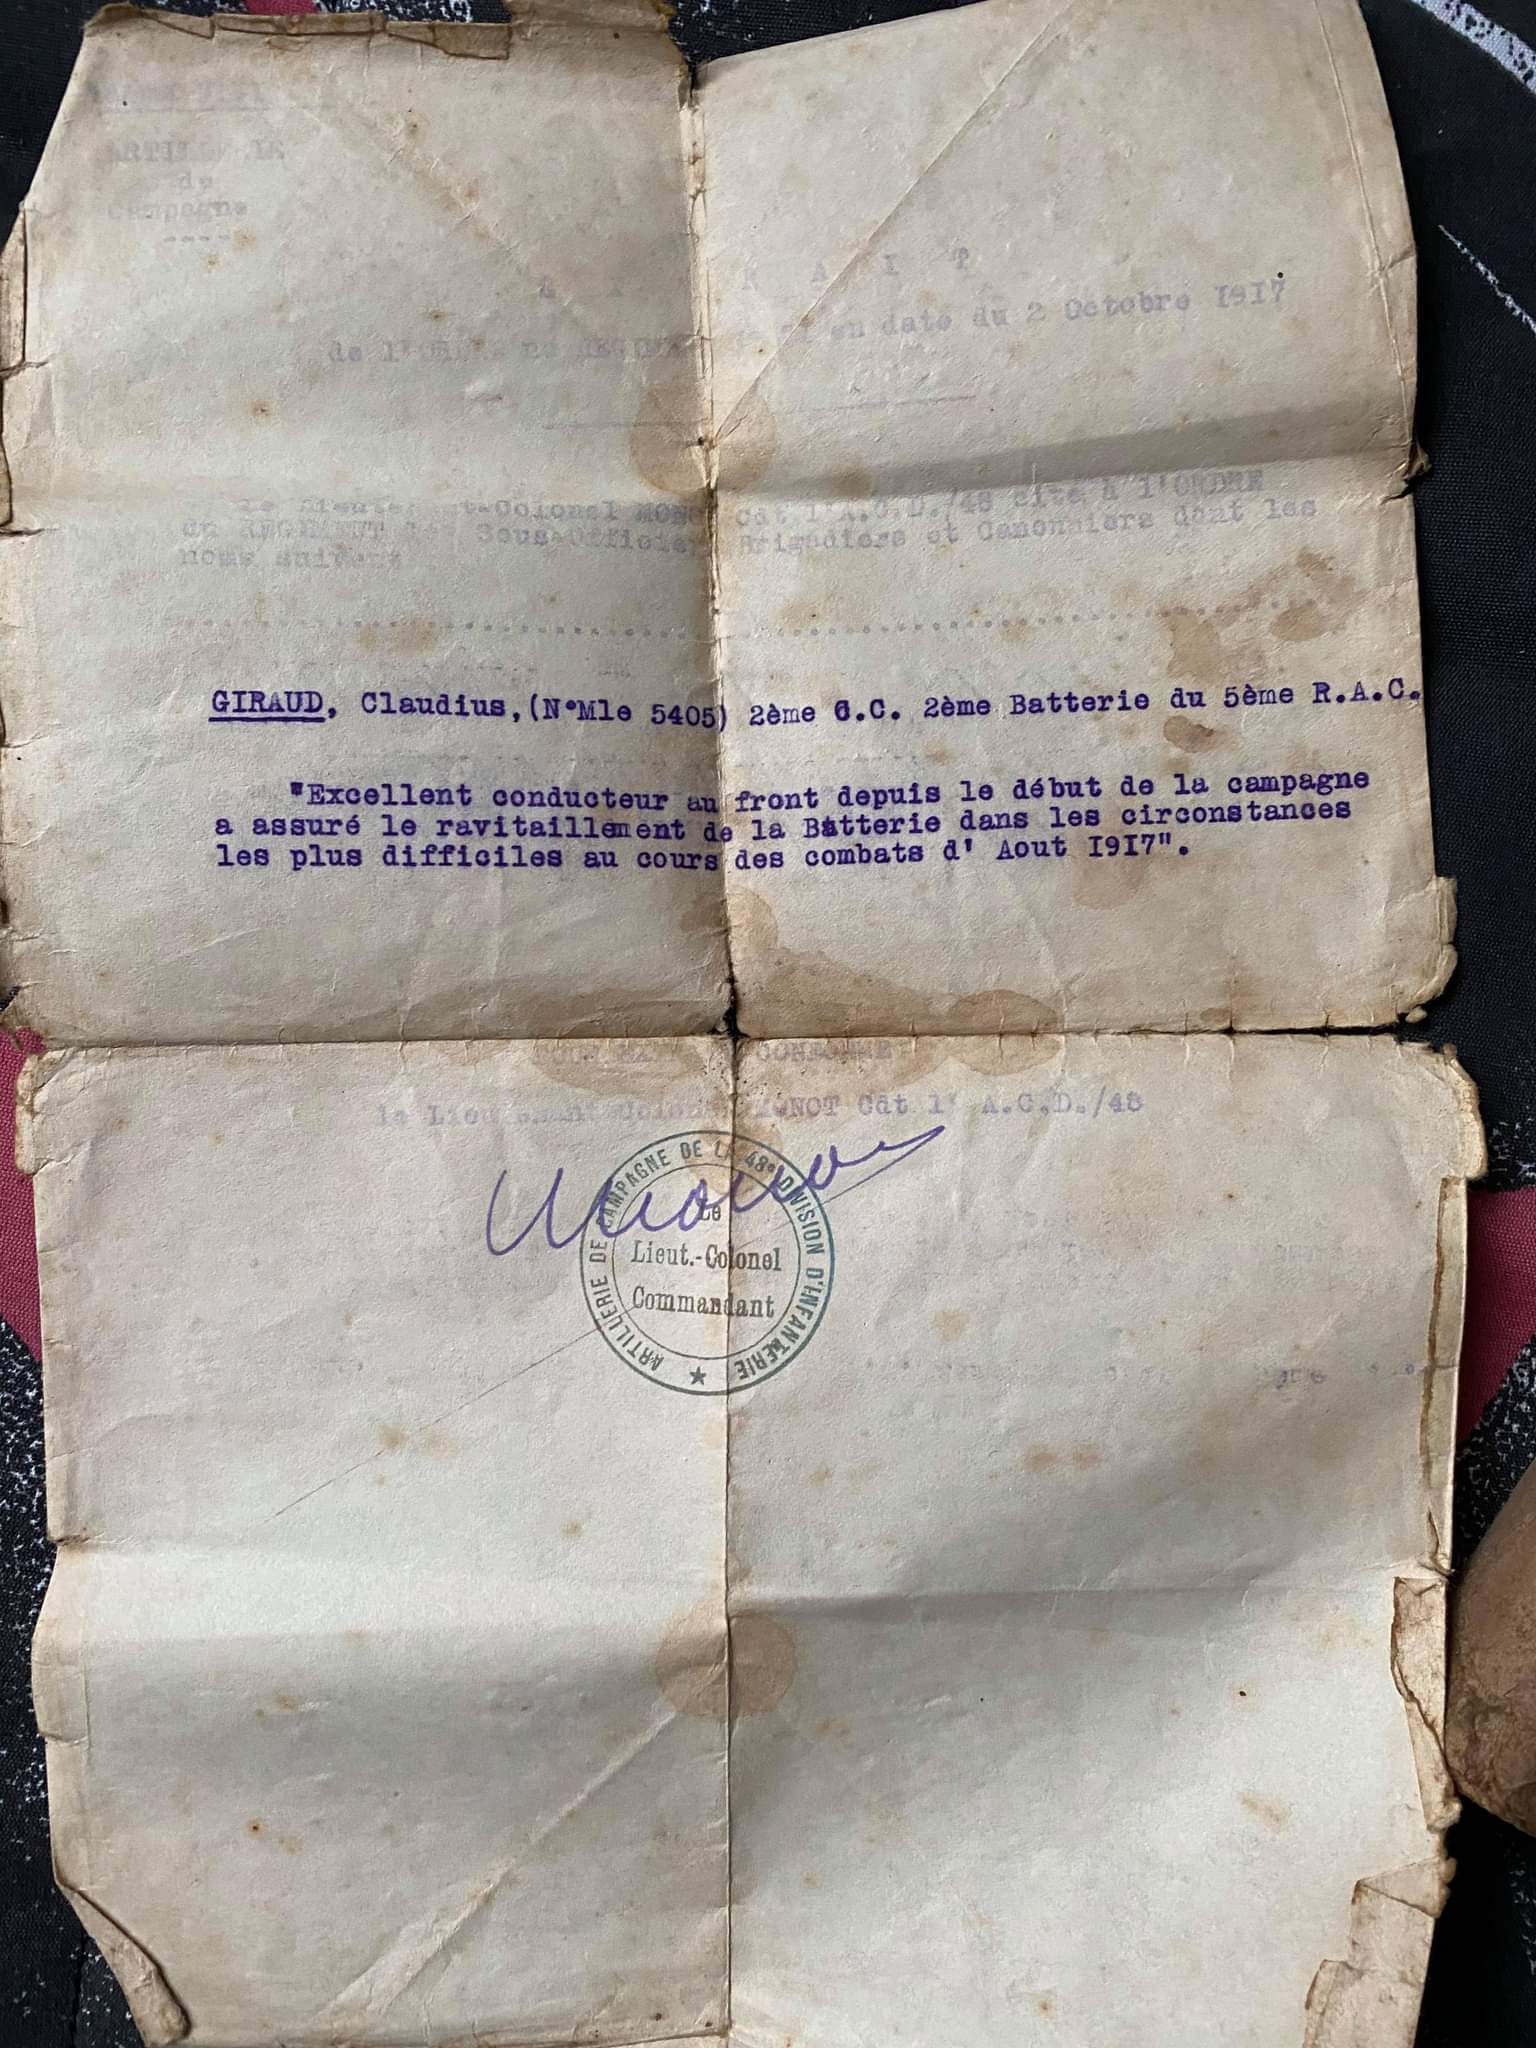 ARTILLERIE
de
Campagne
----
E X T R A I T
de l'ORDRE du REGIMENT en date du 2 Octobre 1917
le Lieutenant-Colonel MONOT Cdt l'A.C.D./48 cite à l'ORDRE
du REGIMENT les Sous-Officiers Brigadiers et Canonniers dont les
noms suivent
GIRAUD, Claudius,(N°Mle 5405) 2ème C.C. 2ème Batterie du 5ème R.A.C.
"Excellent conducteur au front depuis le début de la campagne
a assuré le ravitaillement de la Batterie dans les circonstances
les plus difficiles au cours des combats d' Aout 1917".
POUR EXTRAIT CONFORME
le Lieutenant Colonel MONOT Cdt l' A.C.D./48
ARTILLERIE DE CAMPAGNE DE LA 48e DIVISION D'INFANTERIE
Le
Lieut.-Colonel
Commandant